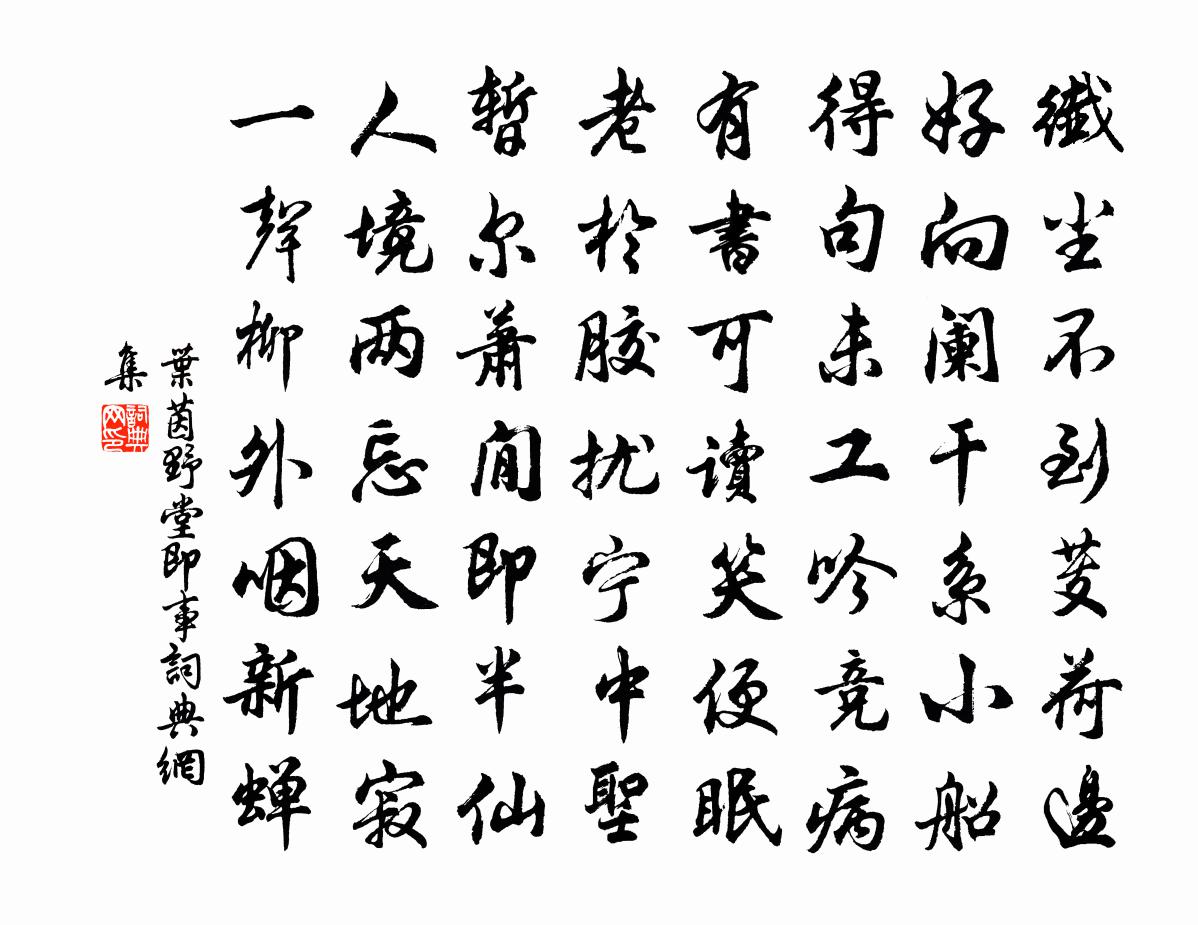 纖尘不到芰荷邊
好向阑干系小船
得句未工吟竞病
有書可讀笑便眠
老於胶扰宁中聖
暂尔蕭閒即半仙
人境两忘天地寂
一聲柳外咽新蝉
葉茵野堂即事詞典網
集
詞典网印